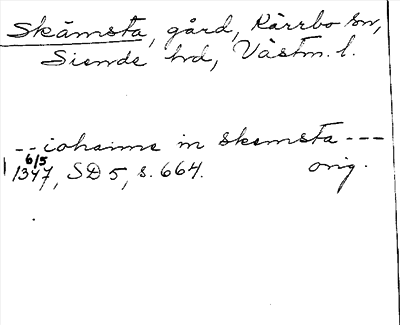 Skämsta, gård, Kärrbo sn,
Siende hd, Västm. l.
-- iohanne in skemsta ---
6/5
1347, SD 5, s. 664. orig.